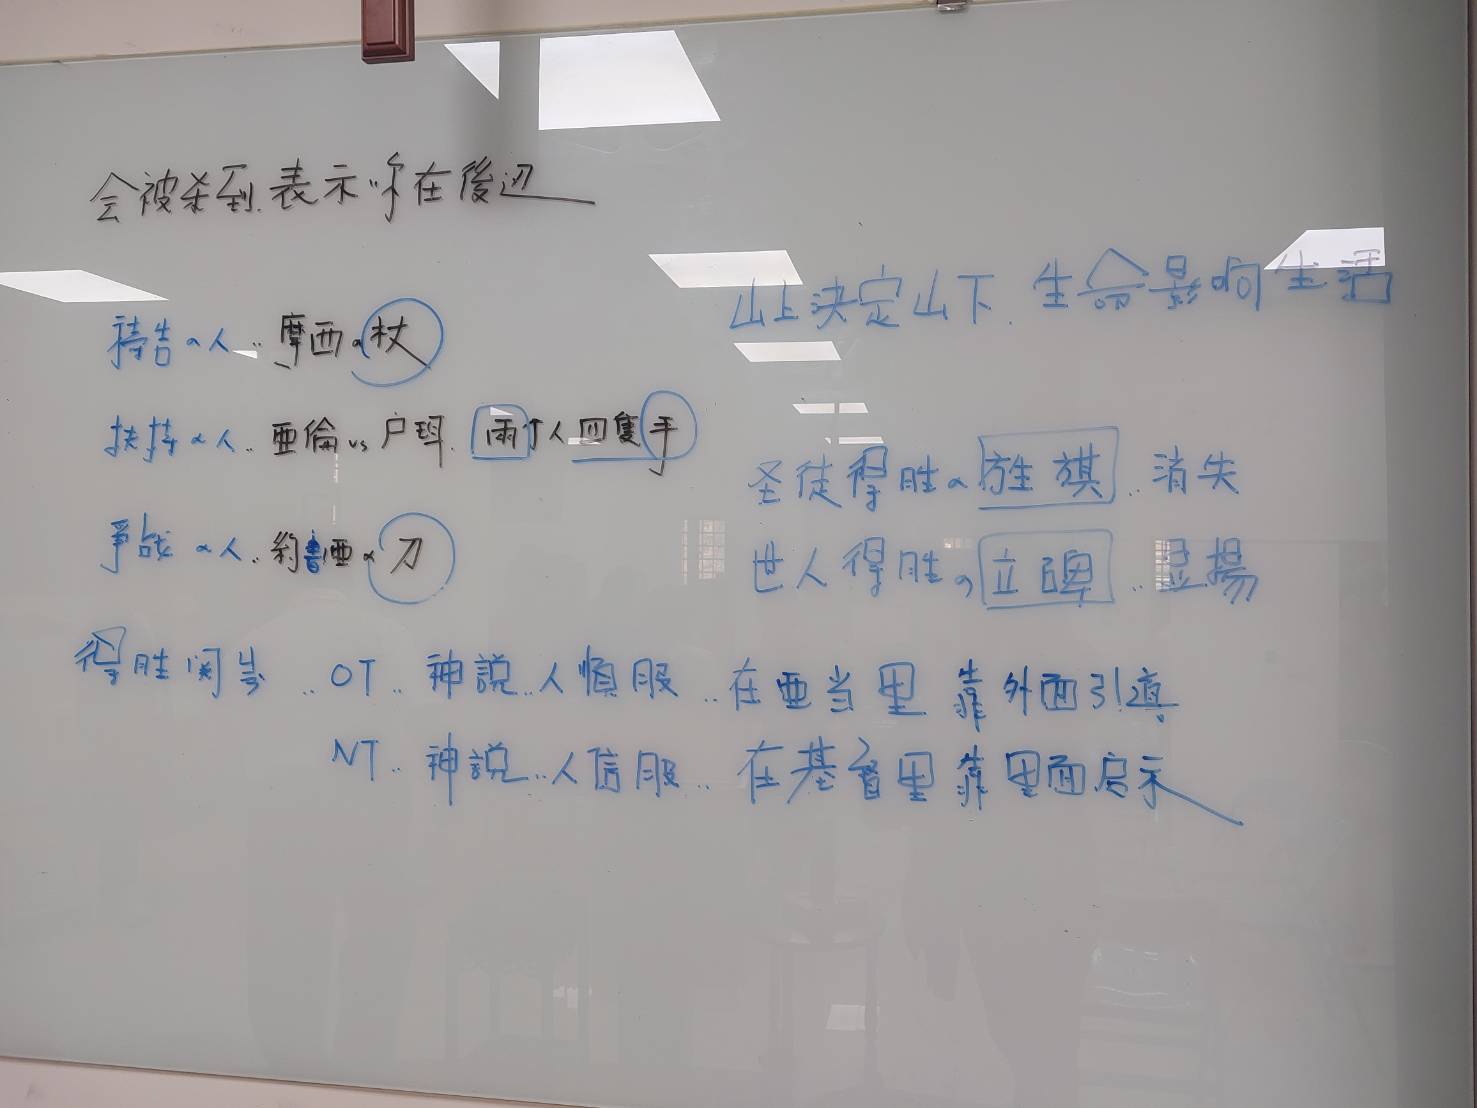 会被杀到.表示你在後边
祷告的人..摩西的杖
扶持的人..亜倫vs户珥.兩个人四隻手
爭战的人..約書亜的刀
山上決定山下.生命影响生活
圣徒得胜的旌旗..消失
世人得胜的立碑..显揚
得胜関鍵..OT..神説..人順服..在亜当里靠外面引導
NT..神説..人信服..在基督里靠里面启示